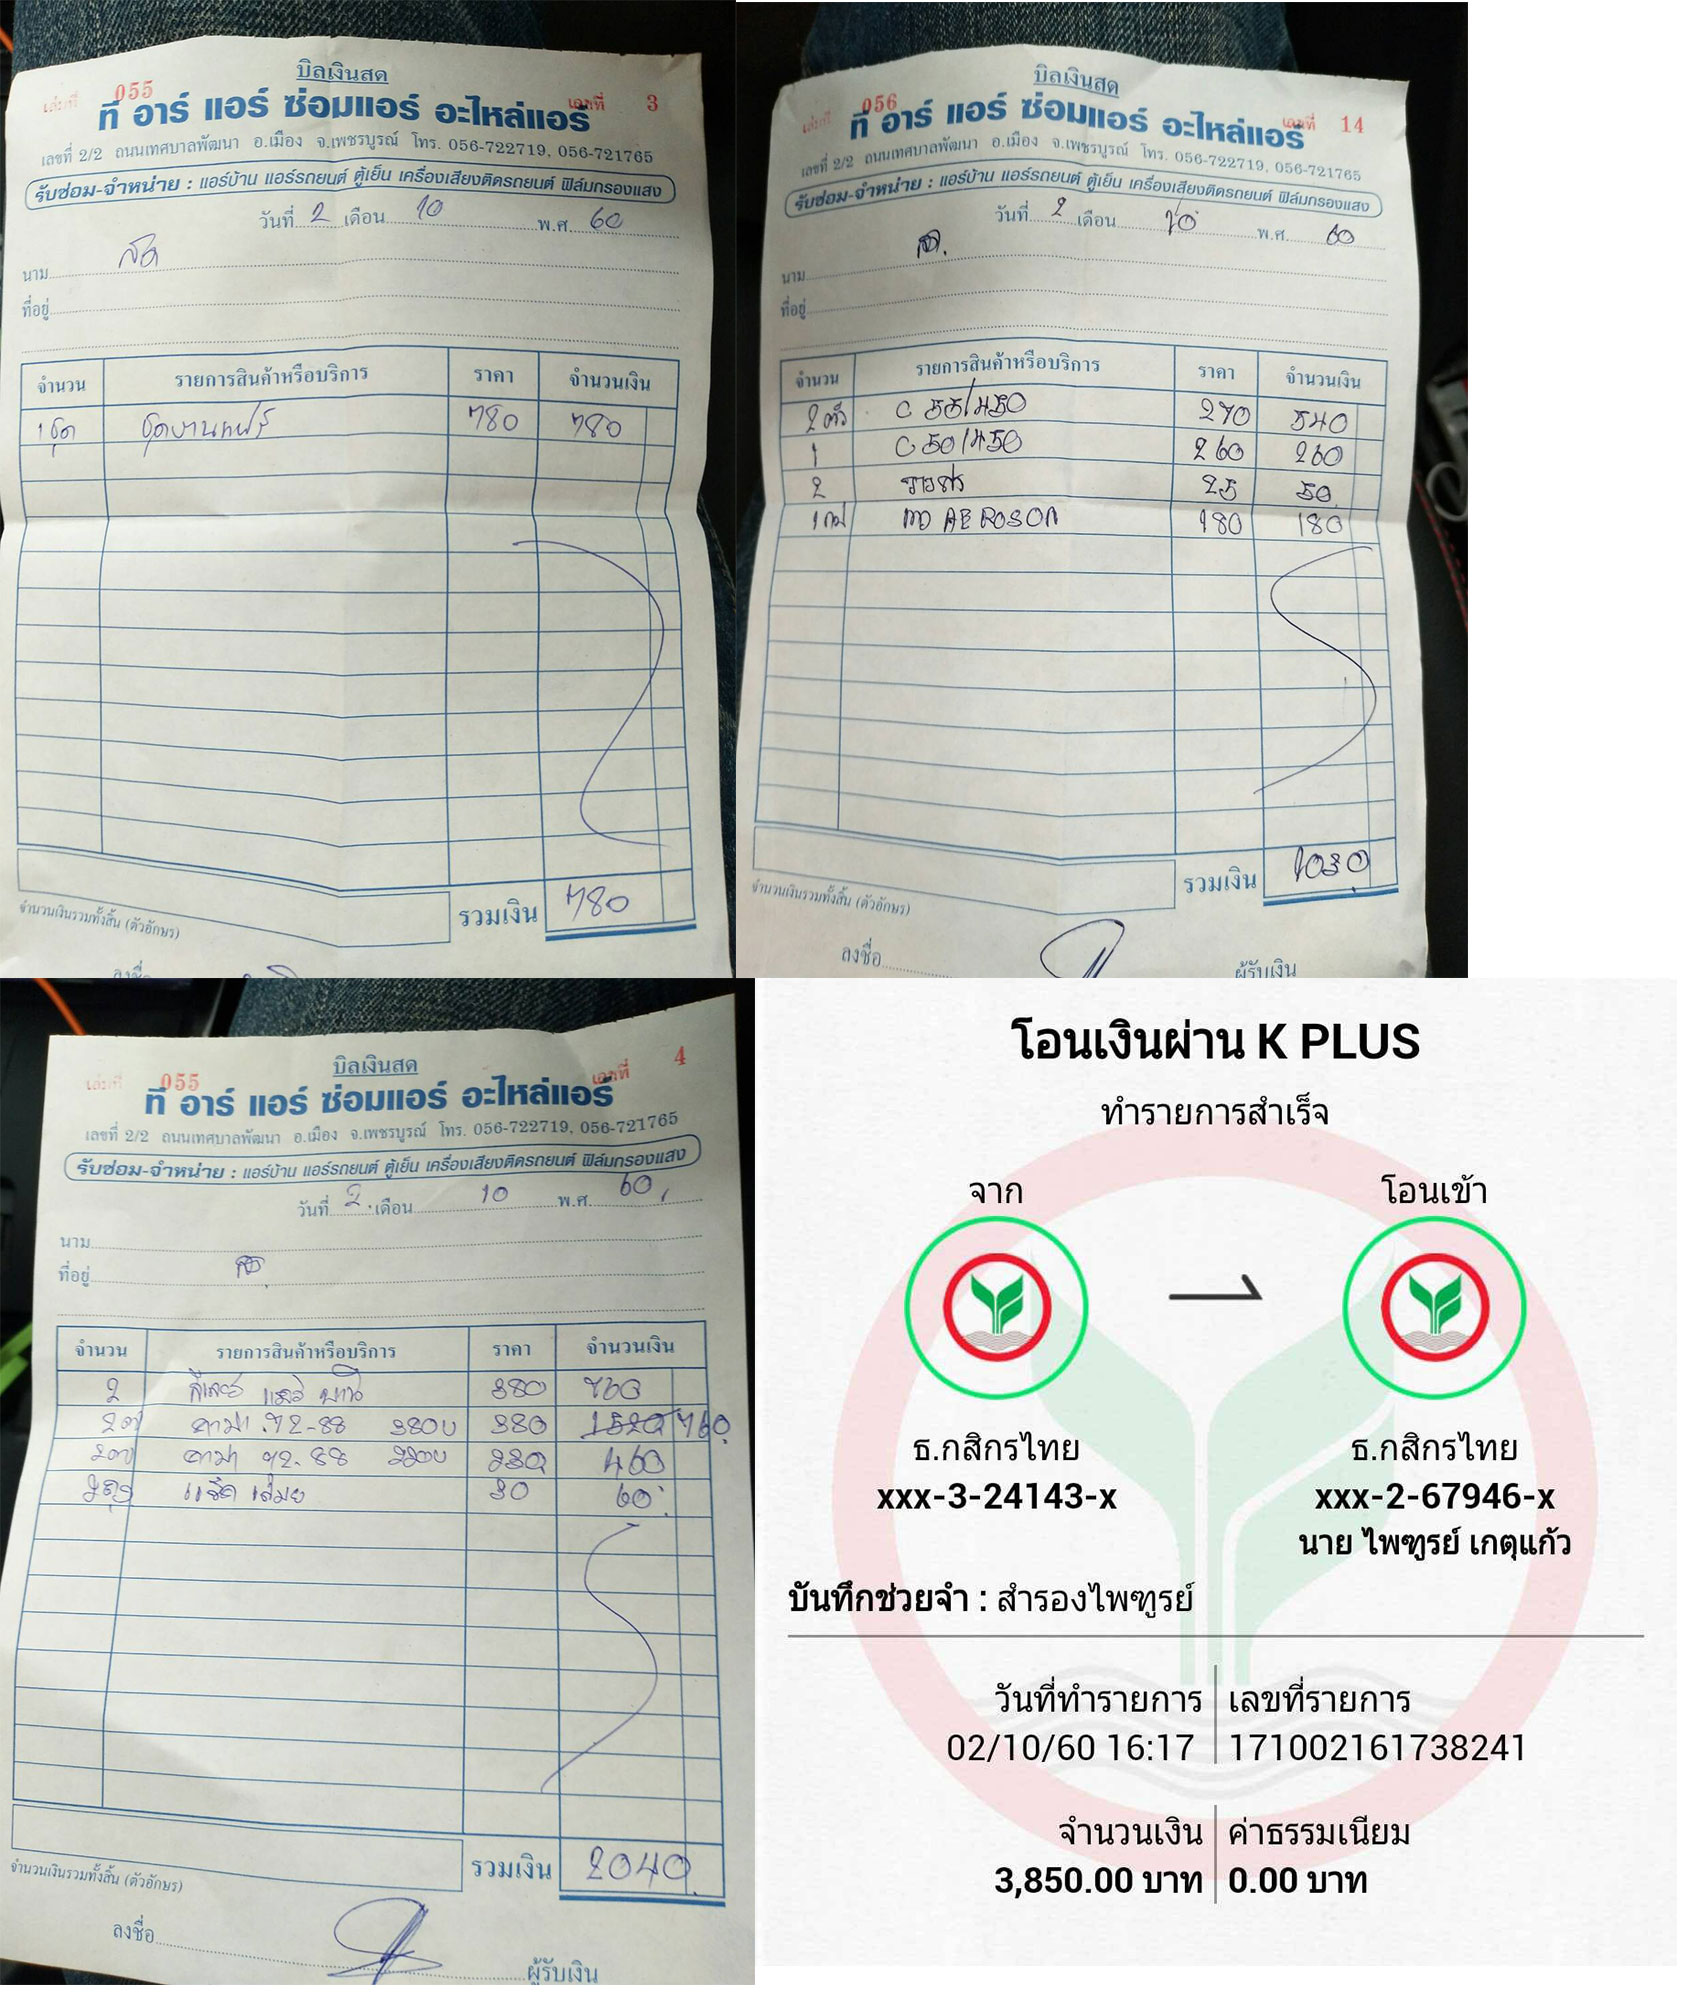 บิลเงินสด
เล่มที่ 055 เลขที่ 3
ที อาร์ แอร์ ซ่อมแอร์ อะไหล่แอร์
เลขที่ 2/2 ถนนเทศบาลพัฒนา อ.เมือง จ.เพชรบูรณ์ โทร. 056-722719, 056-721765
รับซ่อม-จำหน่าย : แอร์บ้าน แอร์รถยนต์ ตู้เย็น เครื่องเสียงติดรถยนต์ ฟิล์มกรองแสง
วันที่ 2 เดือน 10 พ.ศ. 60
นาม สด
ที่อยู่
จำนวน รายการสินค้าหรือบริการ ราคา จำนวนเงิน
1ชุด ชุดบานแฟร์ 780 780
รวมเงิน 780
จำนวนเงินรวมทั้งสิ้น (ตัวอักษร)
ลงชื่อ
บิลเงินสด
เล่มที่ 056 เลขที่ 14
ที อาร์ แอร์ ซ่อมแอร์ อะไหล่แอร์
เลขที่ 2/2 ถนนเทศบาลพัฒนา อ.เมือง จ.เพชรบูรณ์ โทร. 056-722719, 056-721765
รับซ่อม-จำหน่าย : แอร์บ้าน แอร์รถยนต์ ตู้เย็น เครื่องเสียงติดรถยนต์ ฟิล์มกรองแสง
วันที่ 2 เดือน 10 พ.ศ. 60
นาม สด.
ที่อยู่
จำนวน รายการสินค้าหรือบริการ ราคา จำนวนเงิน
2ตัว C 55/450 270 540
1 C 50/450 260 260
2 25 50
1 180 180
รวมเงิน 1030
จำนวนเงินรวมทั้งสิ้น (ตัวอักษร)
ลงชื่อ ผู้รับเงิน
บิลเงินสด
เล่มที่ 055 เลขที่ 4
ที อาร์ แอร์ ซ่อมแอร์ อะไหล่แอร์
เลขที่ 2/2 ถนนเทศบาลพัฒนา อ.เมือง จ.เพชรบูรณ์ โทร. 056-722719, 056-721765
รับซ่อม-จำหน่าย : แอร์บ้าน แอร์รถยนต์ ตู้เย็น เครื่องเสียงติดรถยนต์ ฟิล์มกรองแสง
วันที่ 2. เดือน 10 พ.ศ. 60
นาม
ที่อยู่ สด.
จำนวน รายการสินค้าหรือบริการ ราคา จำนวนเงิน
2 รีเลย์ แอร์ บ้าน 380 760
2 380 1520 760
2 230 460
30 60
รวมเงิน 2040
จำนวนเงินรวมทั้งสิ้น (ตัวอักษร)
ลงชื่อ ผู้รับเงิน
โอนเงินผ่าน K PLUS
ทำรายการสำเร็จ
จาก โอนเข้า
ธ.กสิกรไทย ธ.กสิกรไทย
xxx-3-24143-x xxx-2-67946-x
นาย ไพฑูรย์ เกตุแก้ว
บันทึกช่วยจำ : สำรองไพฑูรย์
วันที่ทำรายการ เลขที่รายการ
02/10/60 16:17 171002161738241
จำนวนเงิน ค่าธรรมเนียม
3,850.00 บาท 0.00 บาท